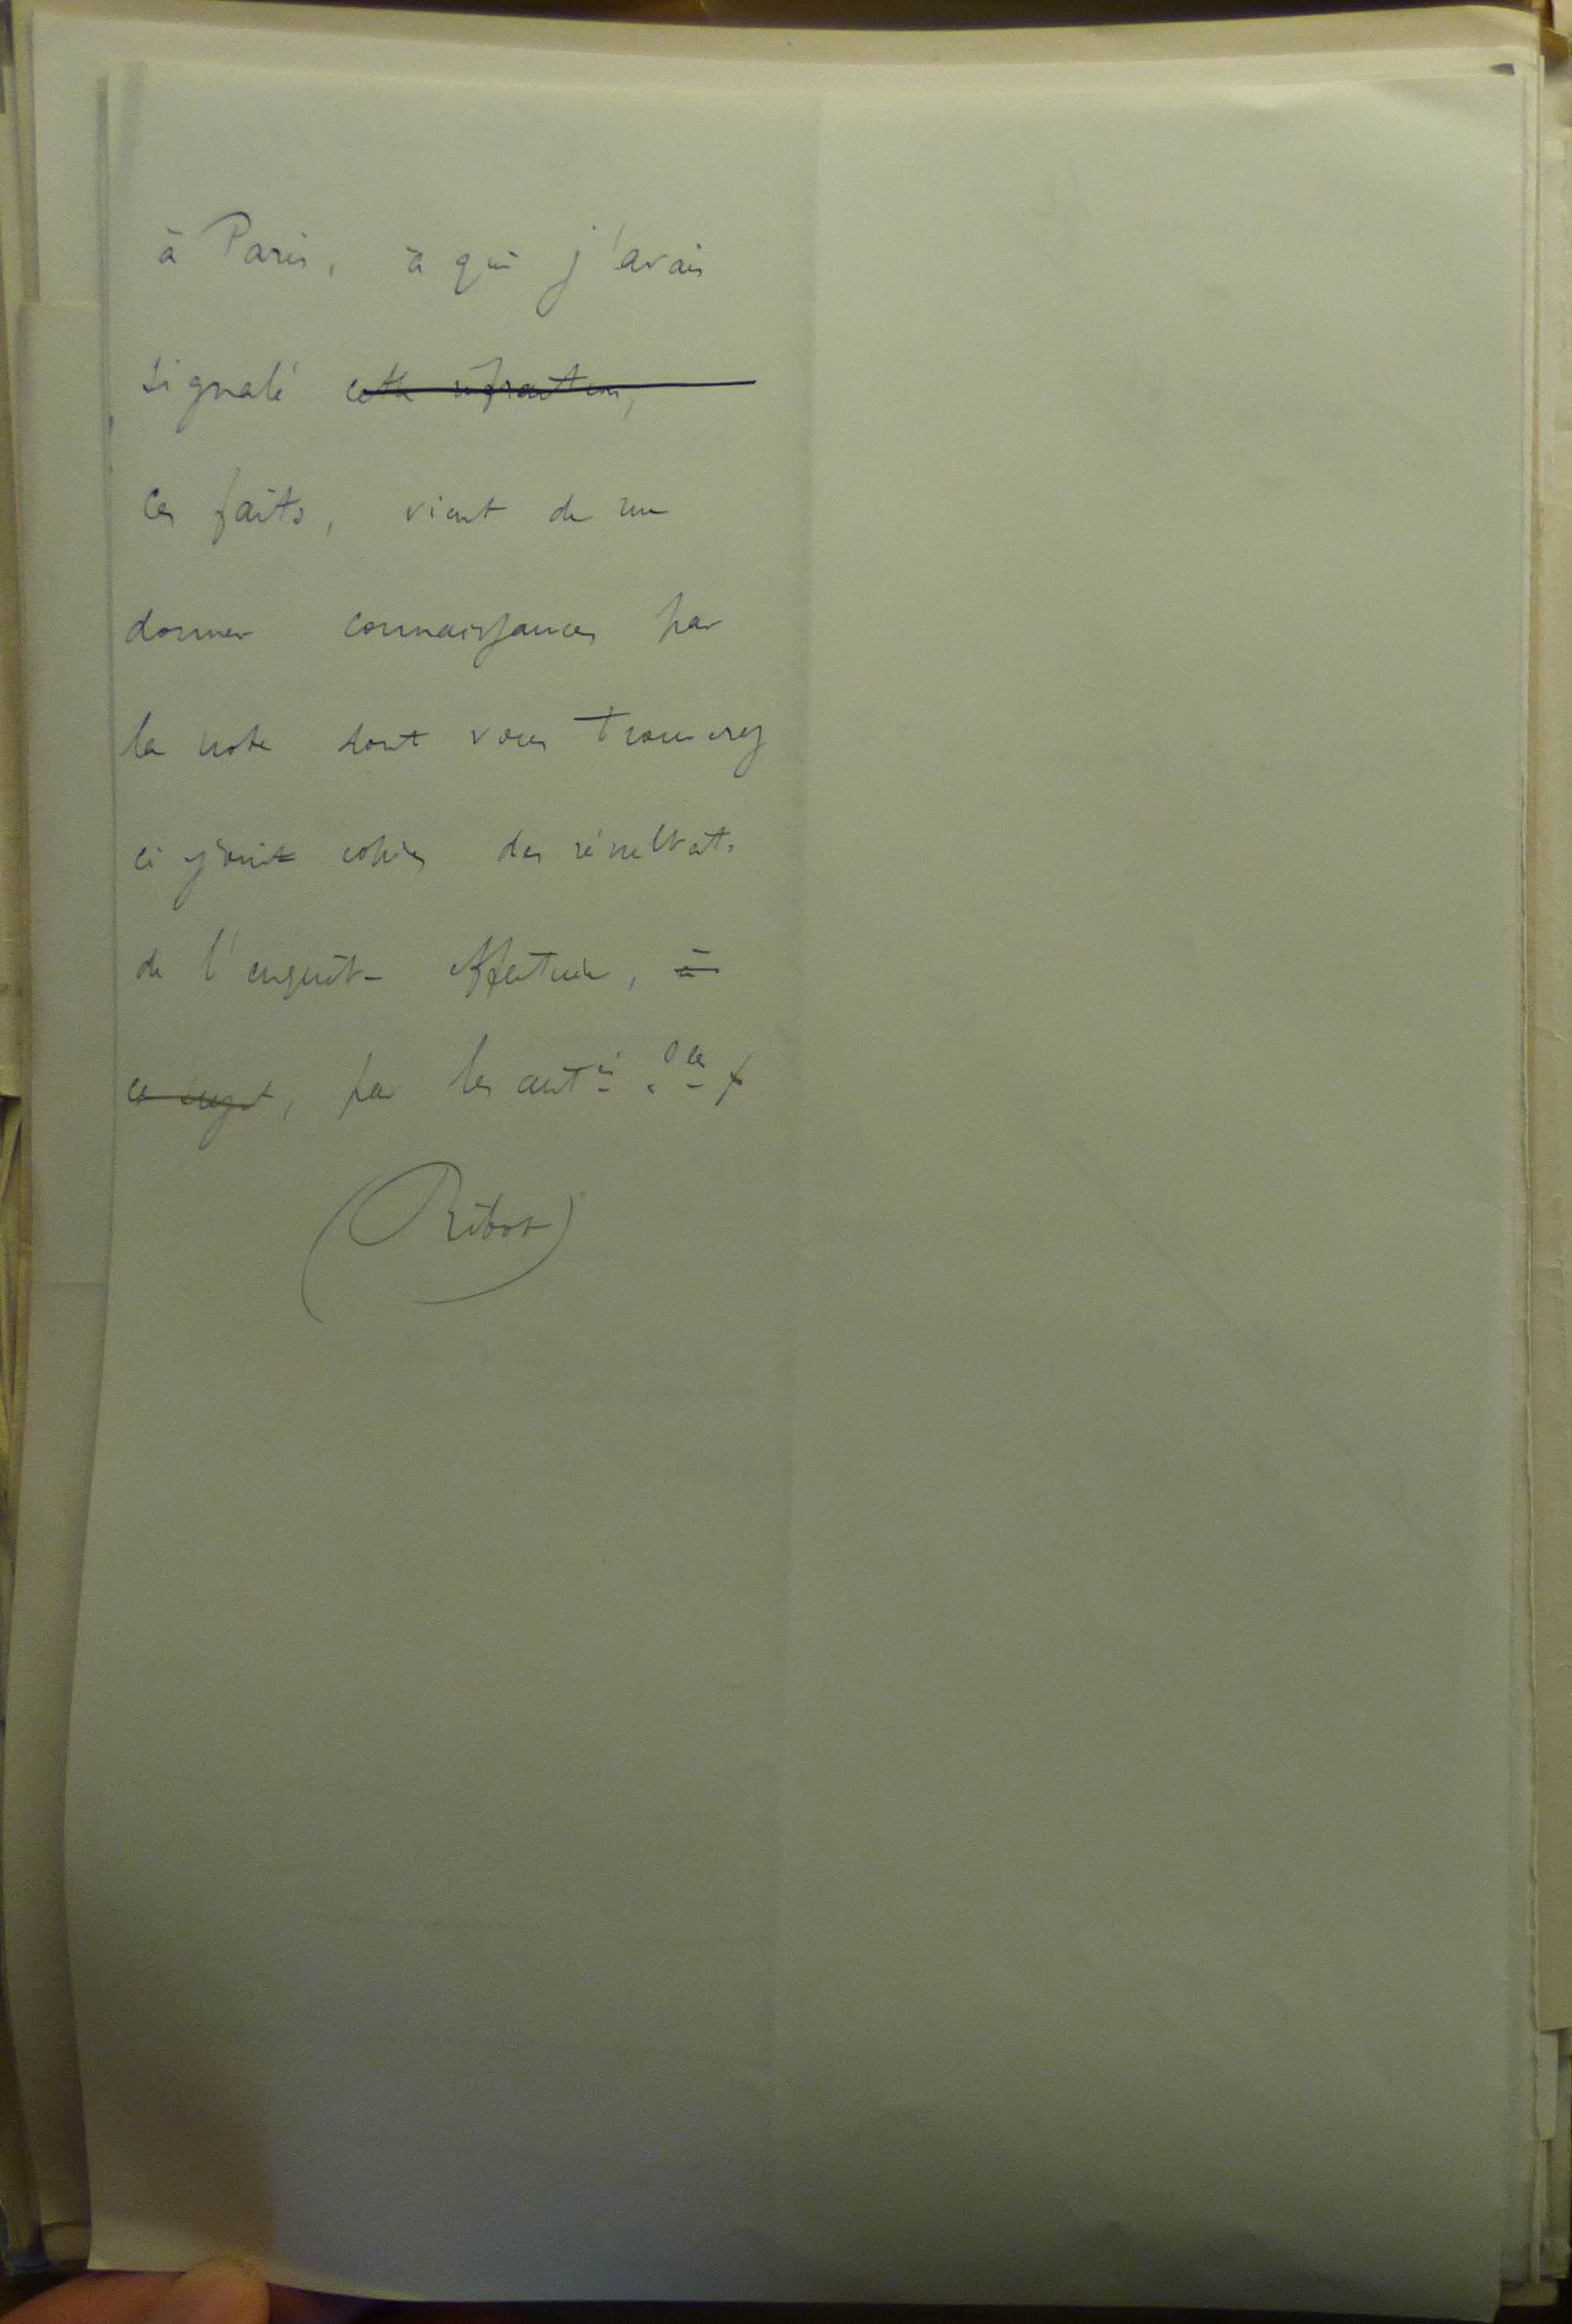 à Paris, à qui j'avais
signalé cette infraction,
ces faits, vient de me
donner connaissances par
la note dont vous trouverez
ci joint copies des résultats
de l'enquête effectuée, à
ce sujet, par les autés
(Ribot)